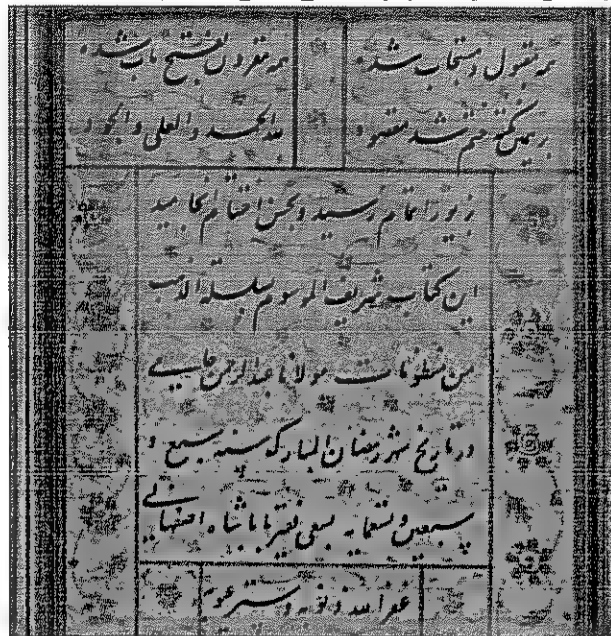 همه مقبول و مستجاب شده همه مقرون بفتح باب شده
برهمین نکته ختم شد مقصود لله الحمد والعلی والجود
بزیور اتمام رسید و بحسن اختتام انجامید
این کتاب شریف الموسوم بسلسلة الذهب
من منظومات مولانا عبدالرحمن جامی
در تاریخ شهر رمضان المبارک سنه سبع و
سبعین و تسعمایه بسعی فقیر باباشاه اصفهانی
غفر الله ذنوبه و ستر عیوبه